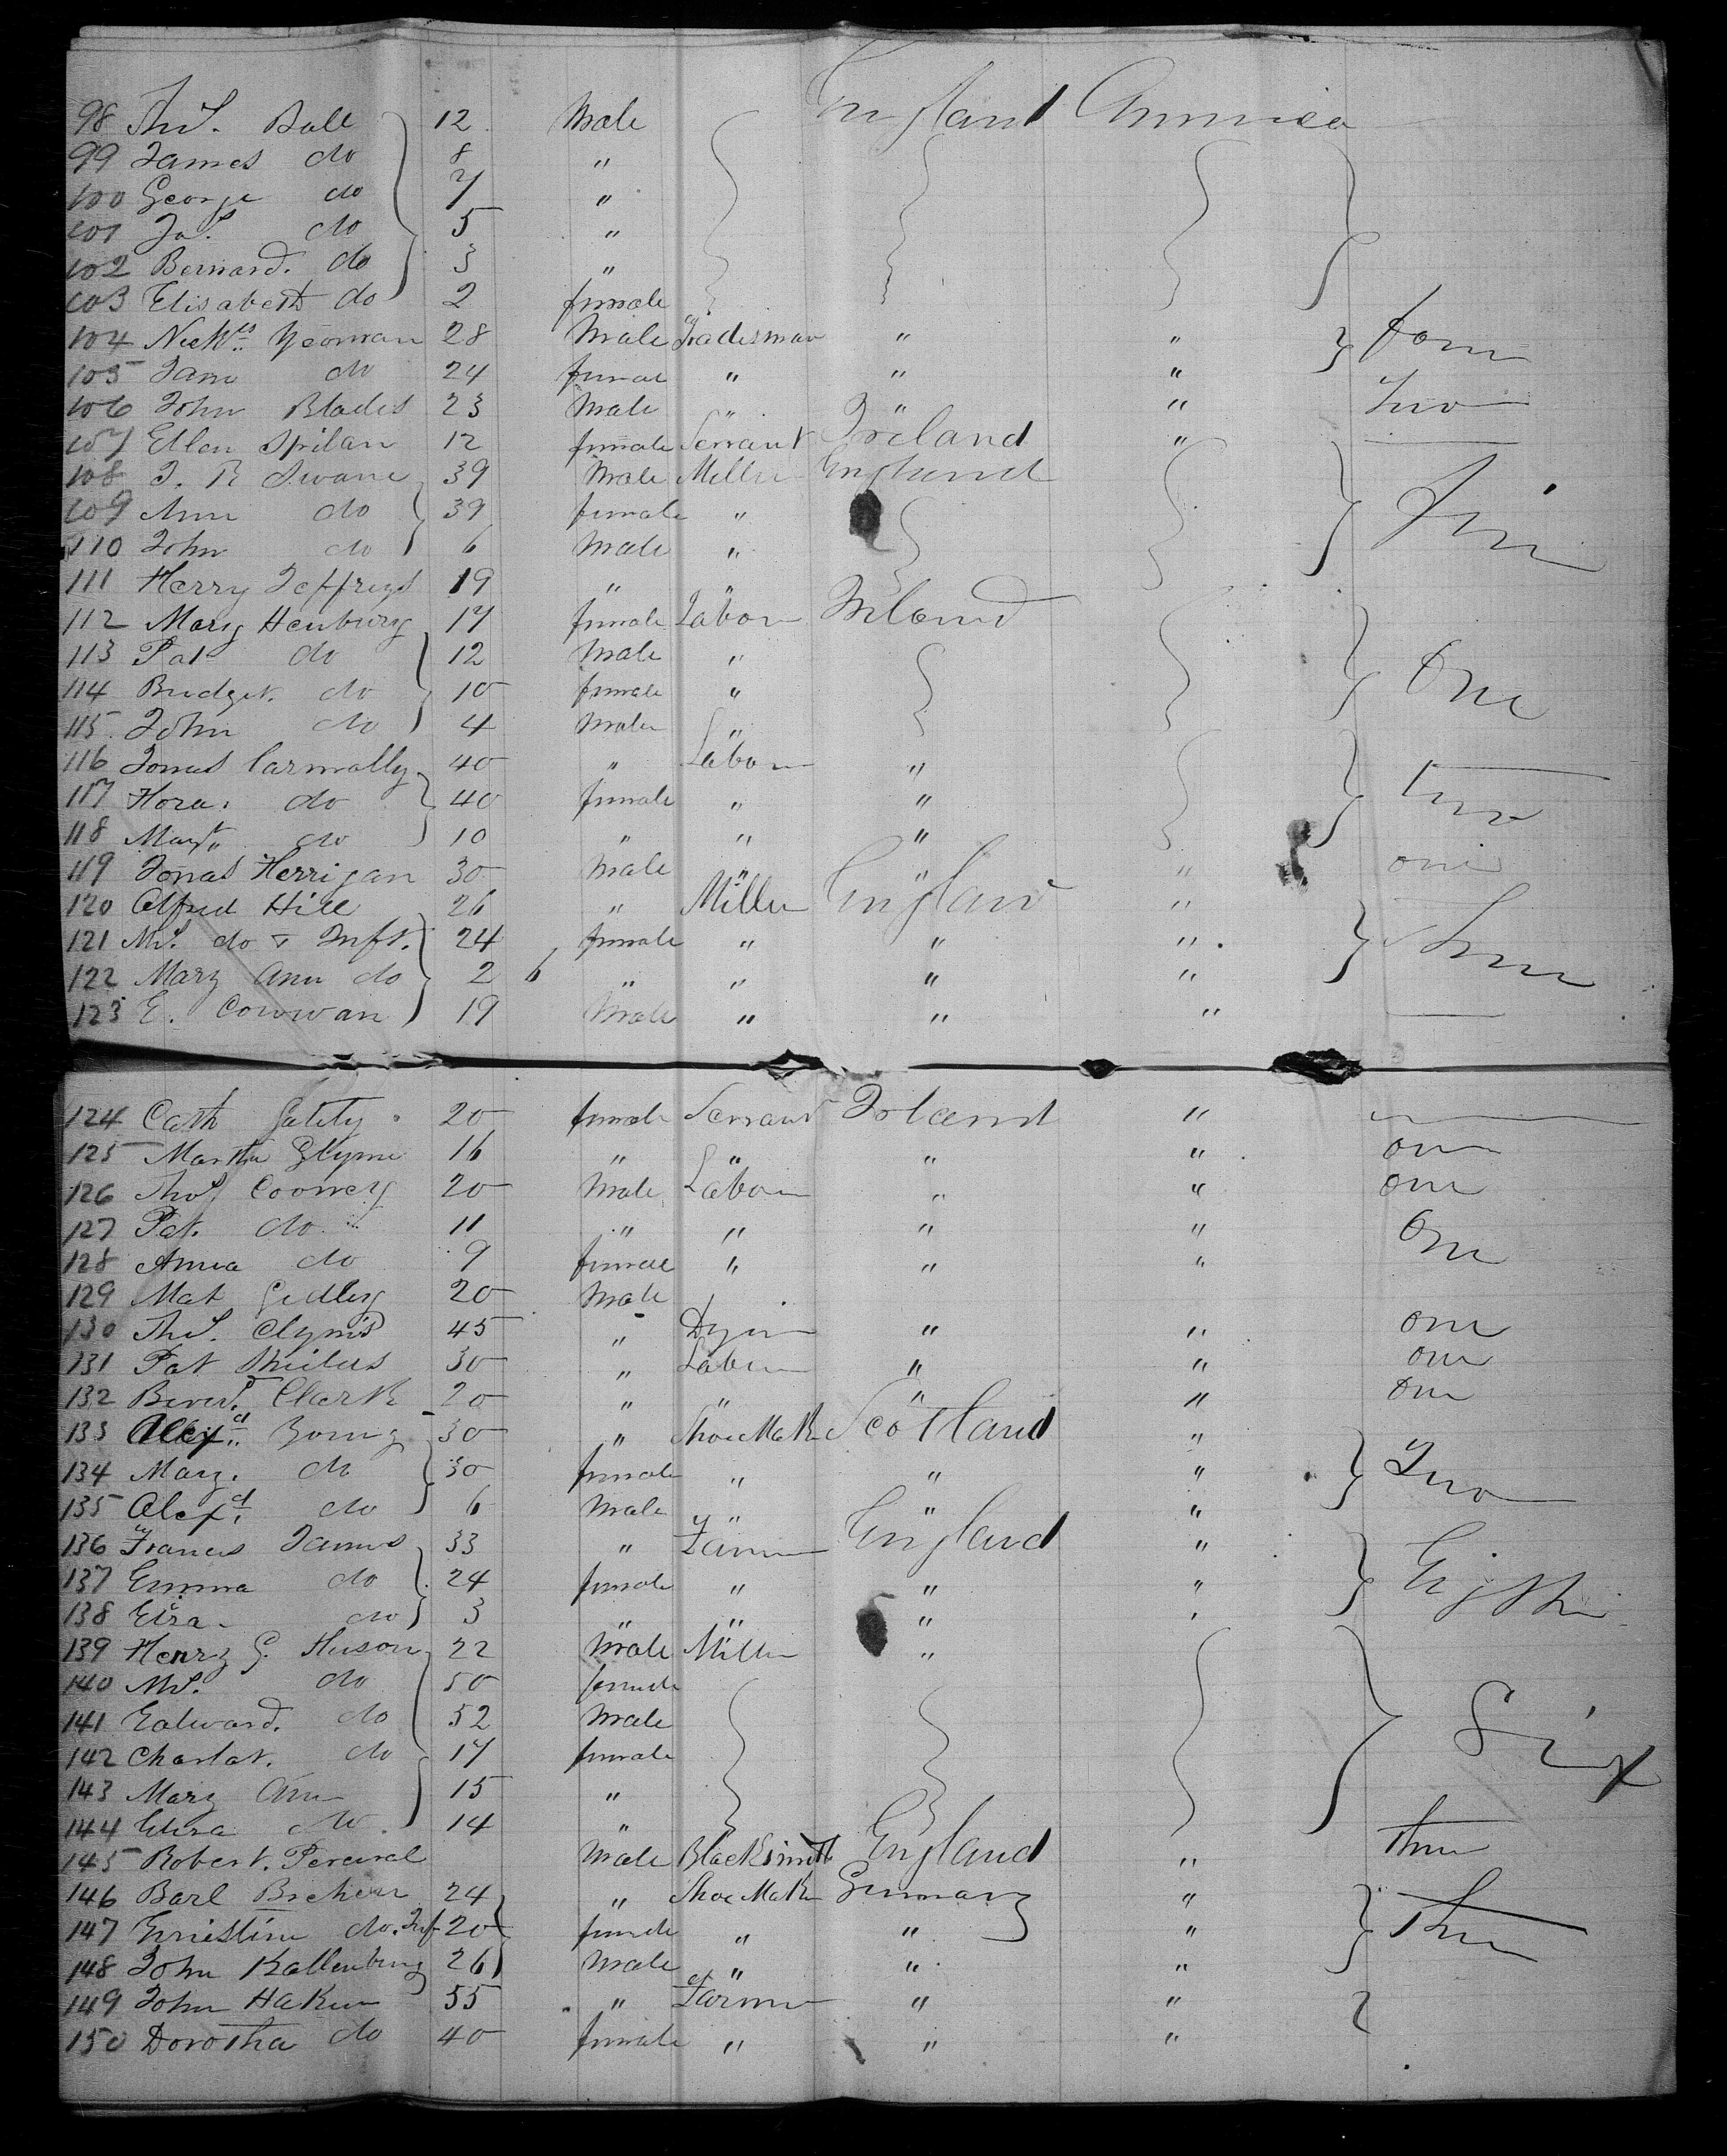 98 Thos. Ball 12 Male England America
99 James do 8 "
100 George do 7 "
101 Jas. do 5 "
102 Bernard. do 3 "
103 Elisabeth do 2 female
104 Nichls Yeoman 28 Male Tradesman " " four
105 Jane do 24 female " " "
106 John Blades 23 Male " " " Two
107 Ellen Spilan 12 female Servant Ireland "
108 J. R Swane 39 Male Miller England
109 Ann do 39 female "
110 John do 6 Male "
111 Herry Jeffreys 19 " "
112 Mary Henbury 17 female Labor Ireland
113 Pat do 12 Male "
114 Bridget. do 10 female " One
115 John do 4 Male "
116 Jonas Carmolly 40 " Labor "
117 Hora. do 40 female " " two
118 Mart. do 10 " " "
119 Jonas Herrigan 30 Male " " " one
120 Alfred Hill 26 " Miller England "
121 Ms. do & Inft. 24 female " " "
122 Mary Ann do 2 6 " " " "
123 E. Cowwan 19 Male " " "
124 Cath 20 female Servant Ireland "
125 Martha Glynn 16 " " " " one
126 Thos Cooney 20 Male Labor " " one
127 Pat. do 11 " " " " One
128 Anna do 9 female " " "
129 Mat Gedley 20 Male
130 Thos. Clyms 45 " Dyer " " one
131 Pat Shields 30 " Labor " " one
132 Clark 20 " " " " one
133 Alexd Young 30 " Shoe Mak Scotland "
134 Mary. do 30 female " " " Two
135 Alexd. do 6 Male " " "
136 Francis James 33 " Farmer England "
137 Emma do 24 female " " " Eight
138 Eisa. do 3 " " " "
139 Henry G. Huson 22 Male Miller "
140 Ms. do 50 female
141 Edward. do 52 Male Six
142 Charlat. do 17 female
143 Mary Ann 15 "
144 Elisa do 14 "
145 Robert. Percival Male Blacksmith England " Three
146 Barl 24 " Shoe Mak Germany "
147 Ernistine do. Inf 20 female " " " Three
148 John Kallenburg 26 Male " " "
149 John Haken 55 " Farmer " "
150 Dorotha do 40 female " " "